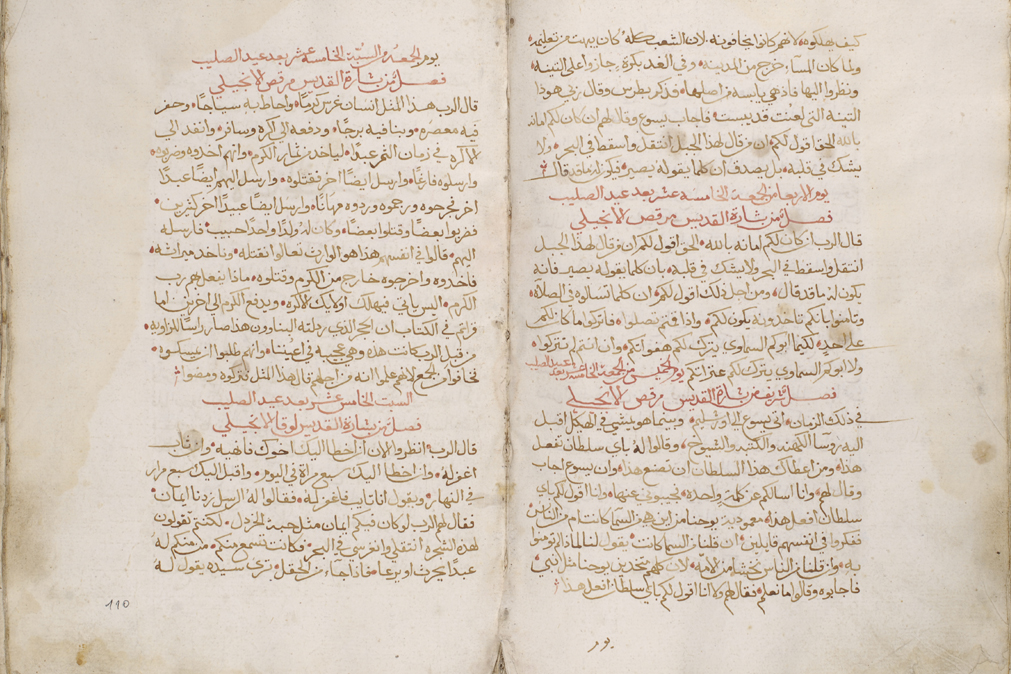 كيف يهلكوه لانهم كانوا يخافونه لان الشعب كله كان يبهت من تعليمه
ولما كان المسآء خرج من المدينه وفي الغد بكرة جازوا على التينه
ونظروا اليها فاذ هي يابسة من اصلها فذكر بطرس وقال ربي هوذا
التينه التي لعنت قد يبست فاجاب يسوع وقال لهم ان كان لكم امانه
بالله الحق اقول لكم ان من قال لهذا الجبل انتقل واسقط في البحر ولا
يشك في قلبه بل يصدق ان كلما يقوله يصير فيكون له ما قد قال
يوم الاربعا من الجمعة الخامسه عشر بعد عيد الصليب
فصل من بشارة القديس مرقص الانجيلي
قال الرب ان كان لكم امانه بالله الحق اقول لكم ان من قال لهذا الجبل
انتقل واسقط في البحر ولا يشك في قلبه بان كلما يقوله يصير فانه
يكون له ما قد قال ومن اجل ذلك اقول لكم ان كلما تسالوه في الصلاه
وتامنوا بانكم تاخذونه يكون لكم واذا قمتم تصلوا فاتركوا ما كان لكم
على احد لكيما ابوكم السماوي يترك لكم هفواتكم وان انتم لم تتركوا
ولا ابوكم السماوي يترك لكم عثراتكم يوم الخميس من الجمعة الخامسة عشر بعد عيد الصليب
فصل شريف من بشارة القديس مرقص الانجيلي
في ذلك الزمان اتى يسوع الى اورشليم وبينما هو يمشي في الهيكل اقبل
اليه روسآ الكهنه والكتبه والشيوخ وقالوا له باي سلطان تفعل
هذا ومن اعطاك هذا السلطان ان تصنع هذا وان يسوع اجاب
وقال لهم وانا اسالكم عن كلمة واحده تجيبوني عنها وانا اقول لكم باي
سلطان افعل هذا معموديه يوحنا من اين هي من السما كانت ام من الناس
ففكروا في انفسهم قايلين ان قلنا من السما كانت يقول لنا لماذا لم تومنوا
به وان قلنا من الناس نخشا من الامه لان كلهم متخذين يوحنا مثل نبي
فاجابوه وقالوا ما نعلم فقال لهم ولا انا اقول لكم باي سلطان افعل هذا
يوم
يوم الجمعه من السبّة الخامسة عشر بعد عيد الصليب
فصل من بشارة القديس مرقص الانجيلي
قال الرب هذا المثل انسان غرس كرمًا واحاط به سياجًا وحفر
فيه معصره وبنا فيه برجًا ودفعه الى اكره وسافر وانفد الى
الاكره في زمان الثمر عبدًا لياخذ من ثمار الكرم وانهم اخذوه وضربوه
وارسلوه فارغًا وارسل ايضًا اخر فقتلوه وارسل اليهم ايضًا عبدًا
اخر فجرحوه ورجموه وردوه مهانًا وارسل ايضًا عبيدًا اخر كثيرين
فضربوا بعضًا وقتلوا بعضًا وكان له ولدًا واحدًا حبيب فارسله
اليهم قالوا في انفسهم هذا هو الوارث تعالوا نقتله وناخد ميراثه
فاخدوه واخرجوه خارج من الكرم وقتلوه ماذا يفعل بهم رب
الكرم اليس ياتي فيهلك اوليك الاكره ويدفع الكرم الى اخرين اما
قراتم في الكتاب ان الحجر الذي رذلته البناوون هذا صار راسًا للزاويه
من قبل الرب كانت هذه وهي عجيبه في اعيننا وانهم طلبوا ان يمسكوه
فخافوا من الجمع لانهم علموا انه من اجلهم قال هذا المثل فتركوه ومضوا
السبت الخامس عشر بعد عيد الصليب
فصل من بشارة القديس لوقا الانجيلي
قال الرب انظروا الان ان اخطا اليك اخوك فانهيه وان تاب
اغفر له وان اخطا اليك سبع مراة في اليوم واقبل اليك سبع مرار
في النهار ويقول انا تايب فاغفر له فقالوا له الرسل زدنا ايمان
فقال لهم الرب لو كان فيكم ايمان مثل حبة الخردل لكنتم تقولون
لهذه الشجره انتقلي وانغرسي في البحر فكانت تسمع منكم من منكم له
عبدًا يحرث او يرعا فاذا جاء من الحقل ترى سيده يقول له
110